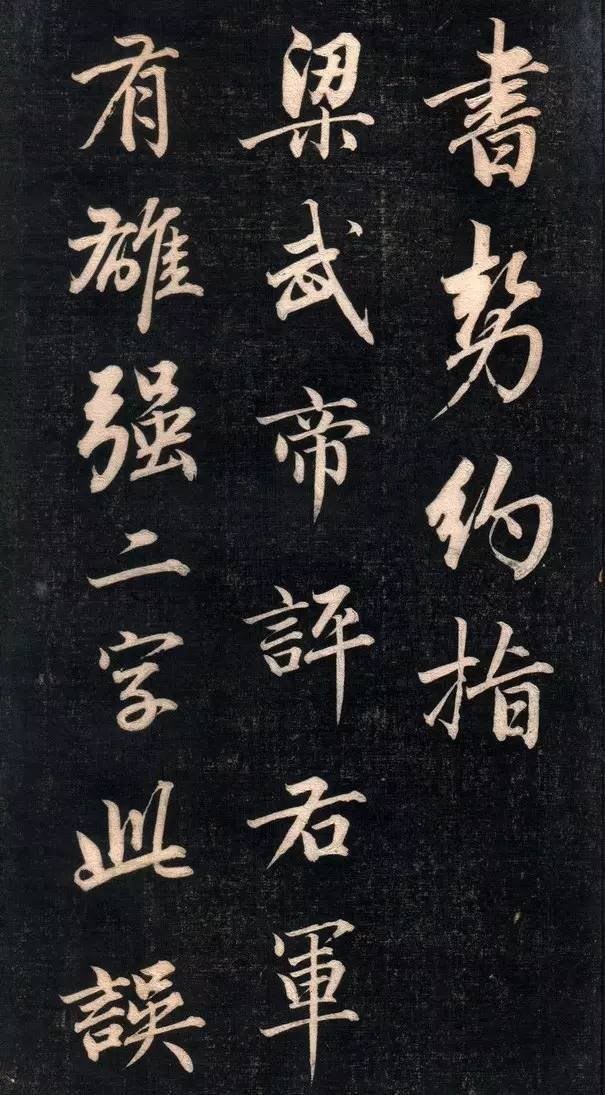 書势約指
梁武帝評右軍
有雄强二字此誤